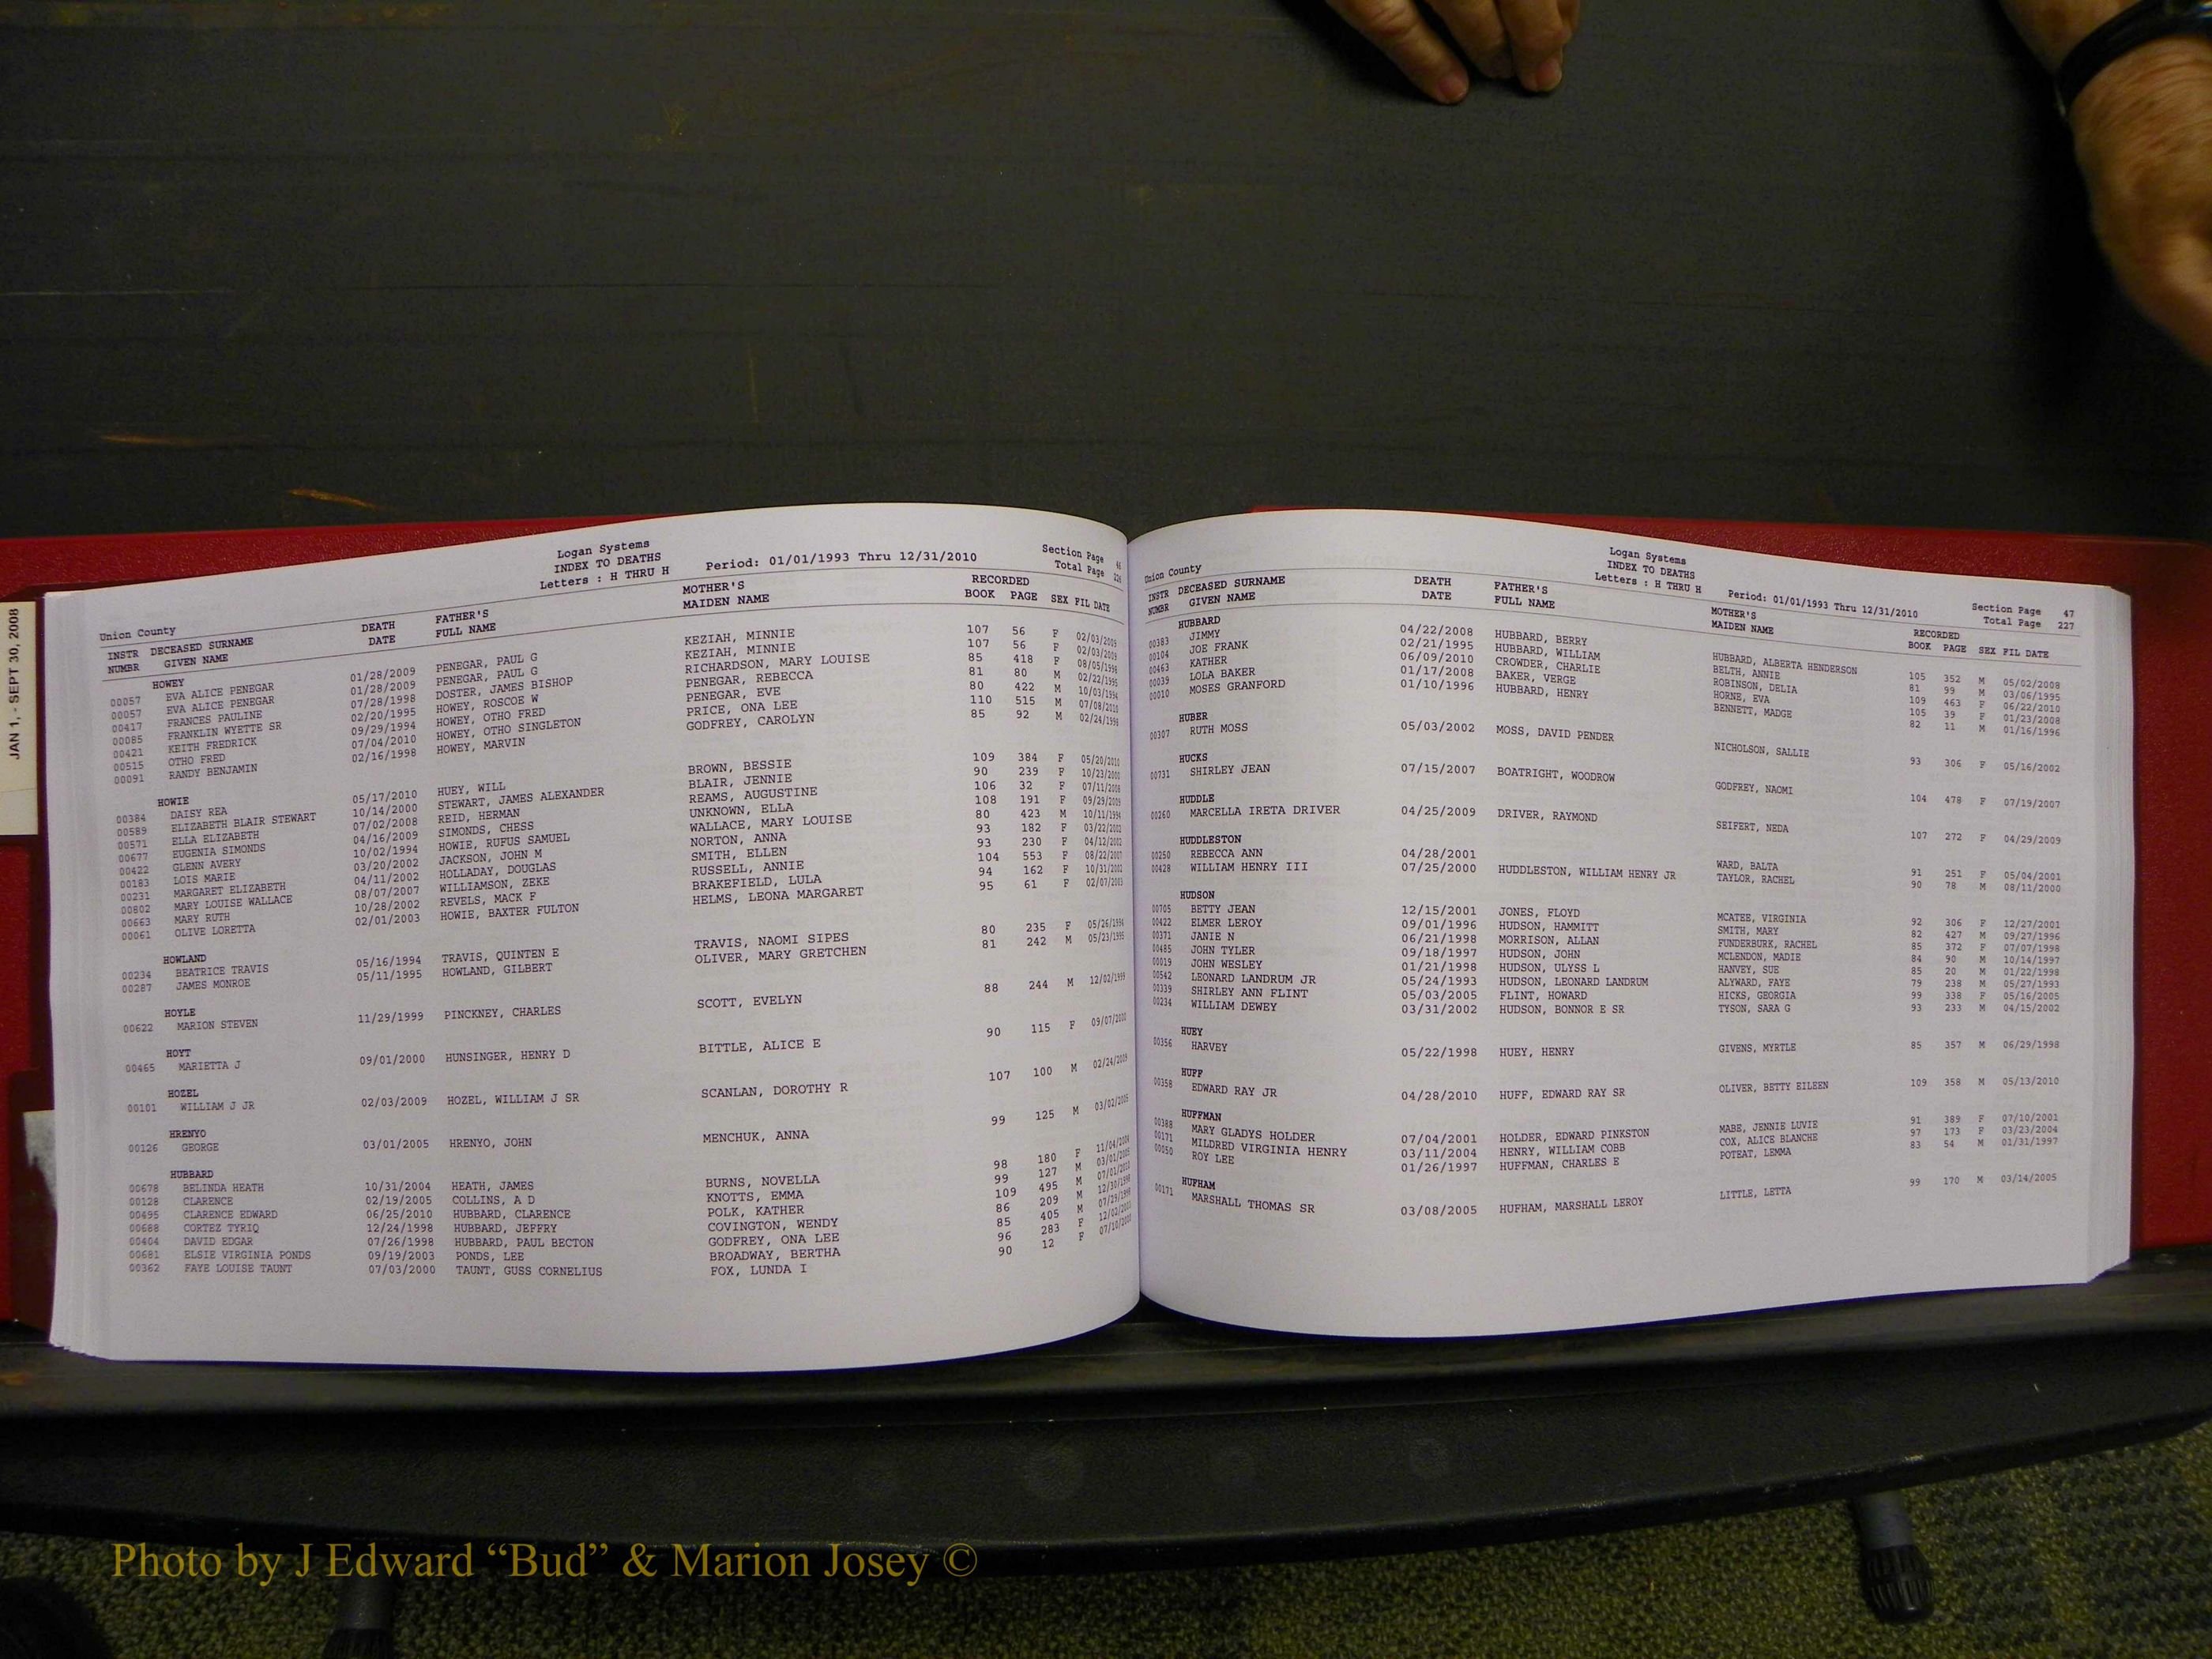 JAN 1, - SEPT 30, 2008
Logan Systems
INDEX TO DEATHS
Letters : H THRU H
Period: 01/01/1993 Thru 12/31/2010
Section Page
Total Page
Union County
INSTR DECEASED SURNAME DEATH FATHER'S MOTHER'S RECORDED
NUMBR GIVEN NAME DATE FULL NAME MAIDEN NAME BOOK PAGE SEX FIL DATE
HOWEY
00057 EVA ALICE PENEGAR 01/28/2009 PENEGAR, PAUL G KEZIAH, MINNIE 107 56 F 02/03/2009
00057 EVA ALICE PENEGAR 01/28/2009 PENEGAR, PAUL G KEZIAH, MINNIE 107 56 F 02/03/2009
00417 FRANCES PAULINE 07/28/1998 DOSTER, JAMES BISHOP RICHARDSON, MARY LOUISE 85 418 F 08/05/1998
00085 FRANKLIN WYETTE SR 02/20/1995 HOWEY, ROSCOE W PENEGAR, REBECCA 81 80 M 02/22/1995
00421 KEITH FREDRICK 09/29/1994 HOWEY, OTHO FRED PENEGAR, EVE 80 422 M 10/03/1994
00515 OTHO FRED 07/04/2010 HOWEY, OTHO SINGLETON PRICE, ONA LEE 110 515 M 07/08/2010
00091 RANDY BENJAMIN 02/16/1998 HOWEY, MARVIN GODFREY, CAROLYN 85 92 M 02/24/1998
HOWIE
00384 DAISY REA 05/17/2010 HUEY, WILL BROWN, BESSIE 109 384 F 05/20/2010
00589 ELIZABETH BLAIR STEWART 10/14/2000 STEWART, JAMES ALEXANDER BLAIR, JENNIE 90 239 F 10/23/2000
00571 ELLA ELIZABETH 07/02/2008 REID, HERMAN REAMS, AUGUSTINE 106 32 F 07/11/2008
00677 EUGENIA SIMONDS 04/16/2009 SIMONDS, CHESS UNKNOWN, ELLA 108 191 F 09/29/2009
00422 GLENN AVERY 10/02/1994 HOWIE, RUFUS SAMUEL WALLACE, MARY LOUISE 80 423 M 10/11/1994
00183 LOIS MARIE 03/20/2002 JACKSON, JOHN M NORTON, ANNA 93 182 F 03/22/2002
00231 MARGARET ELIZABETH 04/11/2002 HOLLADAY, DOUGLAS SMITH, ELLEN 93 230 F 04/12/2002
00802 MARY LOUISE WALLACE 08/07/2007 WILLIAMSON, ZEKE RUSSELL, ANNIE 104 553 F 08/22/2007
00663 MARY RUTH 10/28/2002 REVELS, MACK F BRAKEFIELD, LULA 94 162 F 10/31/2002
00061 OLIVE LORETTA 02/01/2003 HOWIE, BAXTER FULTON HELMS, LEONA MARGARET 95 61 F 02/07/2003
HOWLAND
00234 BEATRICE TRAVIS 05/16/1994 TRAVIS, QUINTEN E TRAVIS, NAOMI SIPES 80 235 F 05/26/1994
00287 JAMES MONROE 05/11/1995 HOWLAND, GILBERT OLIVER, MARY GRETCHEN 81 242 M 05/23/1995
HOYLE
00622 MARION STEVEN 11/29/1999 PINCKNEY, CHARLES SCOTT, EVELYN 88 244 M 12/02/1999
HOYT
00465 MARIETTA J 09/01/2000 HUNSINGER, HENRY D BITTLE, ALICE E 90 115 F 09/07/2000
HOZEL
00101 WILLIAM J JR 02/03/2009 HOZEL, WILLIAM J SR SCANLAN, DOROTHY R 107 100 M 02/24/2009
HRENYO
00126 GEORGE 03/01/2005 HRENYO, JOHN MENCHUK, ANNA 99 125 M 03/02/2005
HUBBARD
00678 BELINDA HEATH 10/31/2004 HEATH, JAMES BURNS, NOVELLA 98 180 F 11/04/2004
00128 CLARENCE 02/19/2005 COLLINS, A D KNOTTS, EMMA 99 127 M 03/01/2005
00495 CLARENCE EDWARD 06/25/2010 HUBBARD, CLARENCE POLK, KATHER 109 495 M 07/01/2010
00688 CORTEZ TYRIQ 12/24/1998 HUBBARD, JEFFRY COVINGTON, WENDY 86 209 M 12/30/1998
00404 DAVID EDGAR 07/26/1998 HUBBARD, PAUL BECTON GODFREY, ONA LEE 85 405 M 07/29/1998
00681 ELSIE VIRGINIA PONDS 09/19/2003 PONDS, LEE BROADWAY, BERTHA 96 283 F
00362 FAYE LOUISE TAUNT 07/03/2000 TAUNT, GUSS CORNELIUS FOX, LUNDA I 90 12 F 07/10/2000
Logan Systems
INDEX TO DEATHS
Letters : H THRU H
Period: 01/01/1993 Thru 12/31/2010
Section Page 47
Total Page 227
Union County
INSTR DECEASED SURNAME DEATH FATHER'S MOTHER'S RECORDED
NUMBR GIVEN NAME DATE FULL NAME MAIDEN NAME BOOK PAGE SEX FIL DATE
HUBBARD
00383 JIMMY 04/22/2008 HUBBARD, BERRY HUBBARD, ALBERTA HENDERSON 105 352 M 05/02/2008
00104 JOE FRANK 02/21/1995 HUBBARD, WILLIAM BELTH, ANNIE 81 99 M 03/06/1995
00463 KATHER 06/09/2010 CROWDER, CHARLIE ROBINSON, DELIA 109 463 F 06/22/2010
00039 LOLA BAKER 01/17/2008 BAKER, VERGE HORNE, EVA 105 39 F 01/23/2008
00010 MOSES GRANFORD 01/10/1996 HUBBARD, HENRY BENNETT, MADGE 82 11 M 01/16/1996
HUBER
00307 RUTH MOSS 05/03/2002 MOSS, DAVID PENDER NICHOLSON, SALLIE 93 306 F 05/16/2002
HUCKS
00731 SHIRLEY JEAN 07/15/2007 BOATRIGHT, WOODROW GODFREY, NAOMI 104 478 F 07/19/2007
HUDDLE
00260 MARCELLA IRETA DRIVER 04/25/2009 DRIVER, RAYMOND SEIFERT, NEDA 107 272 F 04/29/2009
HUDDLESTON
00250 REBECCA ANN 04/28/2001 WARD, BALTA 91 251 F 05/04/2001
00428 WILLIAM HENRY III 07/25/2000 HUDDLESTON, WILLIAM HENRY JR TAYLOR, RACHEL 90 78 M 08/11/2000
HUDSON
00705 BETTY JEAN 12/15/2001 JONES, FLOYD MCATEE, VIRGINIA 92 306 F 12/27/2001
00422 ELMER LEROY 09/01/1996 HUDSON, HAMMITT SMITH, MARY 82 427 M 09/27/1996
00371 JANIE N 06/21/1998 MORRISON, ALLAN FUNDERBURK, RACHEL 85 372 F 07/07/1998
00485 JOHN TYLER 09/18/1997 HUDSON, JOHN MCLENDON, MADIE 84 90 M 10/14/1997
00019 JOHN WESLEY 01/21/1998 HUDSON, ULYSS L HANVEY, SUE 85 20 M 01/22/1998
00542 LEONARD LANDRUM JR 05/24/1993 HUDSON, LEONARD LANDRUM ALYWARD, FAYE 79 238 M 05/27/1993
00339 SHIRLEY ANN FLINT 05/03/2005 FLINT, HOWARD HICKS, GEORGIA 99 338 F 05/16/2005
00234 WILLIAM DEWEY 03/31/2002 HUDSON, BONNOR E SR TYSON, SARA G 93 233 M 04/15/2002
HUEY
00356 HARVEY 05/22/1998 HUEY, HENRY GIVENS, MYRTLE 85 357 M 06/29/1998
HUFF
00358 EDWARD RAY JR 04/28/2010 HUFF, EDWARD RAY SR OLIVER, BETTY EILEEN 109 358 M 05/13/2010
HUFFMAN
00388 MARY GLADYS HOLDER 07/04/2001 HOLDER, EDWARD PINKSTON MABE, JENNIE LUVIE 91 389 F 07/10/2001
00171 MILDRED VIRGINIA HENRY 03/11/2004 HENRY, WILLIAM COBB COX, ALICE BLANCHE 97 173 F 03/23/2004
00050 ROY LEE 01/26/1997 HUFFMAN, CHARLES E POTEAT, LEMMA 83 54 M 01/31/1997
HUFHAM
00171 MARSHALL THOMAS SR 03/08/2005 HUFHAM, MARSHALL LEROY LITTLE, LETTA 99 170 M 03/14/2005
Photo by J Edward “Bud” & Marion Josey ©